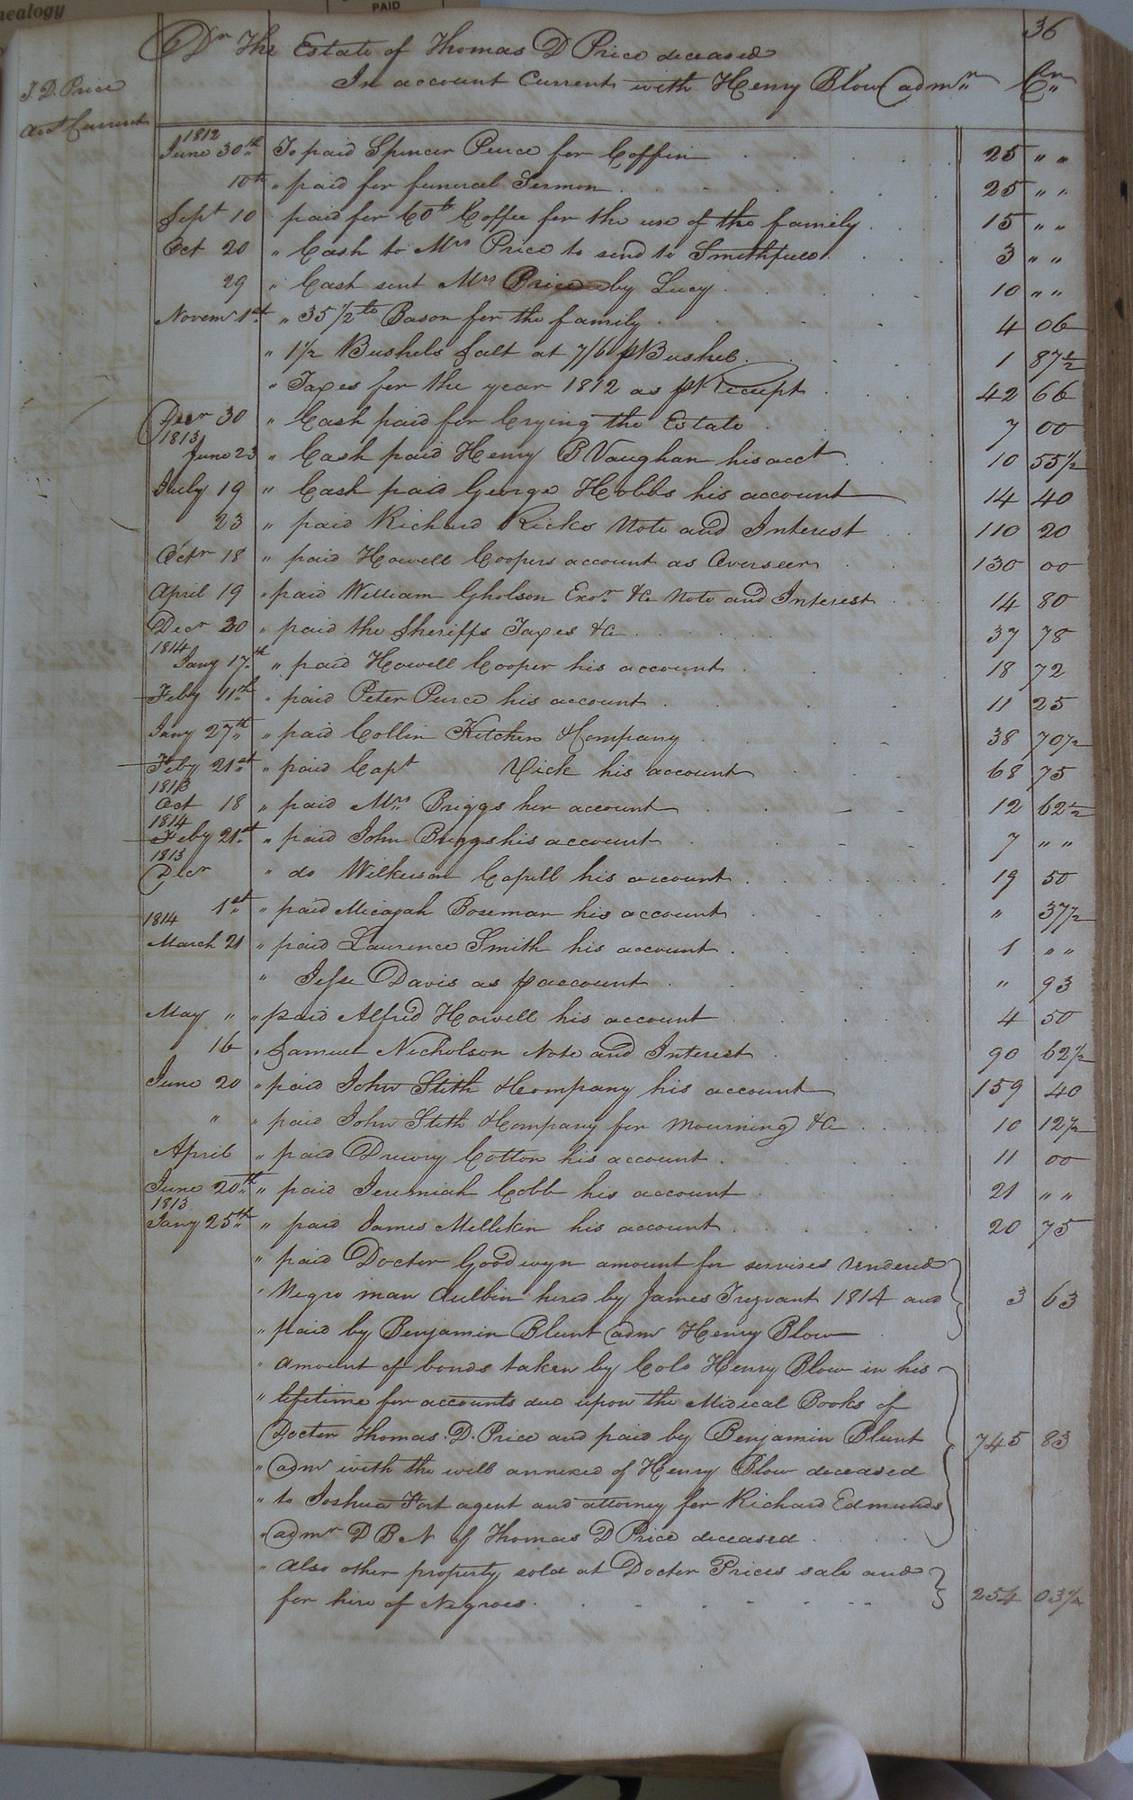 nealogy
PAID
36
Dr The Estate of Thomas D Price deceased
In account Current with Henry Blow admr Cr
T. D. Price
Acct Current
1812
June 30th To paid Spencer Peirce for Coffin 25 " "
10th " paid for funeral Sermon 25 " "
Sept 10 paid for 60 lb Coffee for the use of the family 15 " "
Oct 20 " Cash to Mrs Price to send to Smithfield 3 " "
29 " Cash sent Mrs Price by Lucy 10 " "
Novem 1st " 35 1/2 lb Bason for the family 4 06
" 1 1/2 Bushels Salt at 7/6 p Bushel 1 87 1/2
" Taxes for the year 1812 as p Receipt 42 66
Decr 30 " Cash paid for Crying the Estate 7 00
1813
June 23 " Cash paid Henry B Vaughan his acct 10 55 1/2
July 19 " Cash paid George Hobbs his account 14 40
23 " paid Richard Ricks Note and Interest 110 20
Octr 18 " paid Howell Coopers account as Overseer 130 00
April 19 " paid William Gholson Exor &c Note and Interest 14 80
Decr 30 " paid the Sheriffs Taxes &c 37 78
1814
Jany 17th " paid Howell Cooper his account 18 72
Feby 11th " paid Peter Peirce his account 11 25
Jany 27th " paid Collin Kitchen & Company 38 70 1/2
Feby 21st " paid Capt Vick his account 68 75
1813
Oct 18 " paid Mrs Briggs her account 12 62 1/2
1814
Feby 21st " paid John Briggs his account 7 " "
1813
Decr " do Wilkerson Capell his account 19 50
1st " paid Micajah Boseman his account " 37 1/2
1814
March 21 " paid Laurence Smith his account 1 " "
" Jesse Davis as p account " 93
May " " paid Alfred Howell his account 4 50
16 " Samuel Nicholson Note and Interest 90 62 1/2
June 20 " paid John Stith & Company his account 159 40
" " paid John Stith & Company for Mourning &c 10 12 1/2
April " paid Drewry Cotton his account 11 00
June 20th " paid Jeremiah Cobb his account 21 " "
1813
Jany 25th " paid James Millikin his account 20 75
" paid Doctor Goodwyn amount for servises rendered
" Negro man hired by James Trezvant 1814 and 3 63
" paid by Benjamin Blunt admr Henry Blow
" Amount of bonds taken by Colo Henry Blow in his
" lifetime for accounts due upon the Medical Books of
Doctor Thomas. D. Price and paid by Benjamin Blunt 745 83
" admr with the will annexed of Henry Blow deceased
" to Joshua Fort agent and attorney for Richard Edmunds
" admr D B N of Thomas D Price deceased
" Also other property sold at Doctor Prices sale and
for hire of Negroes 254 03 1/2